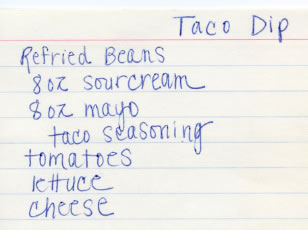 Taco Dip
Refried Beans
8oz sourcream
8oz mayo
taco seasoning
tomatoes
lettuce
cheese